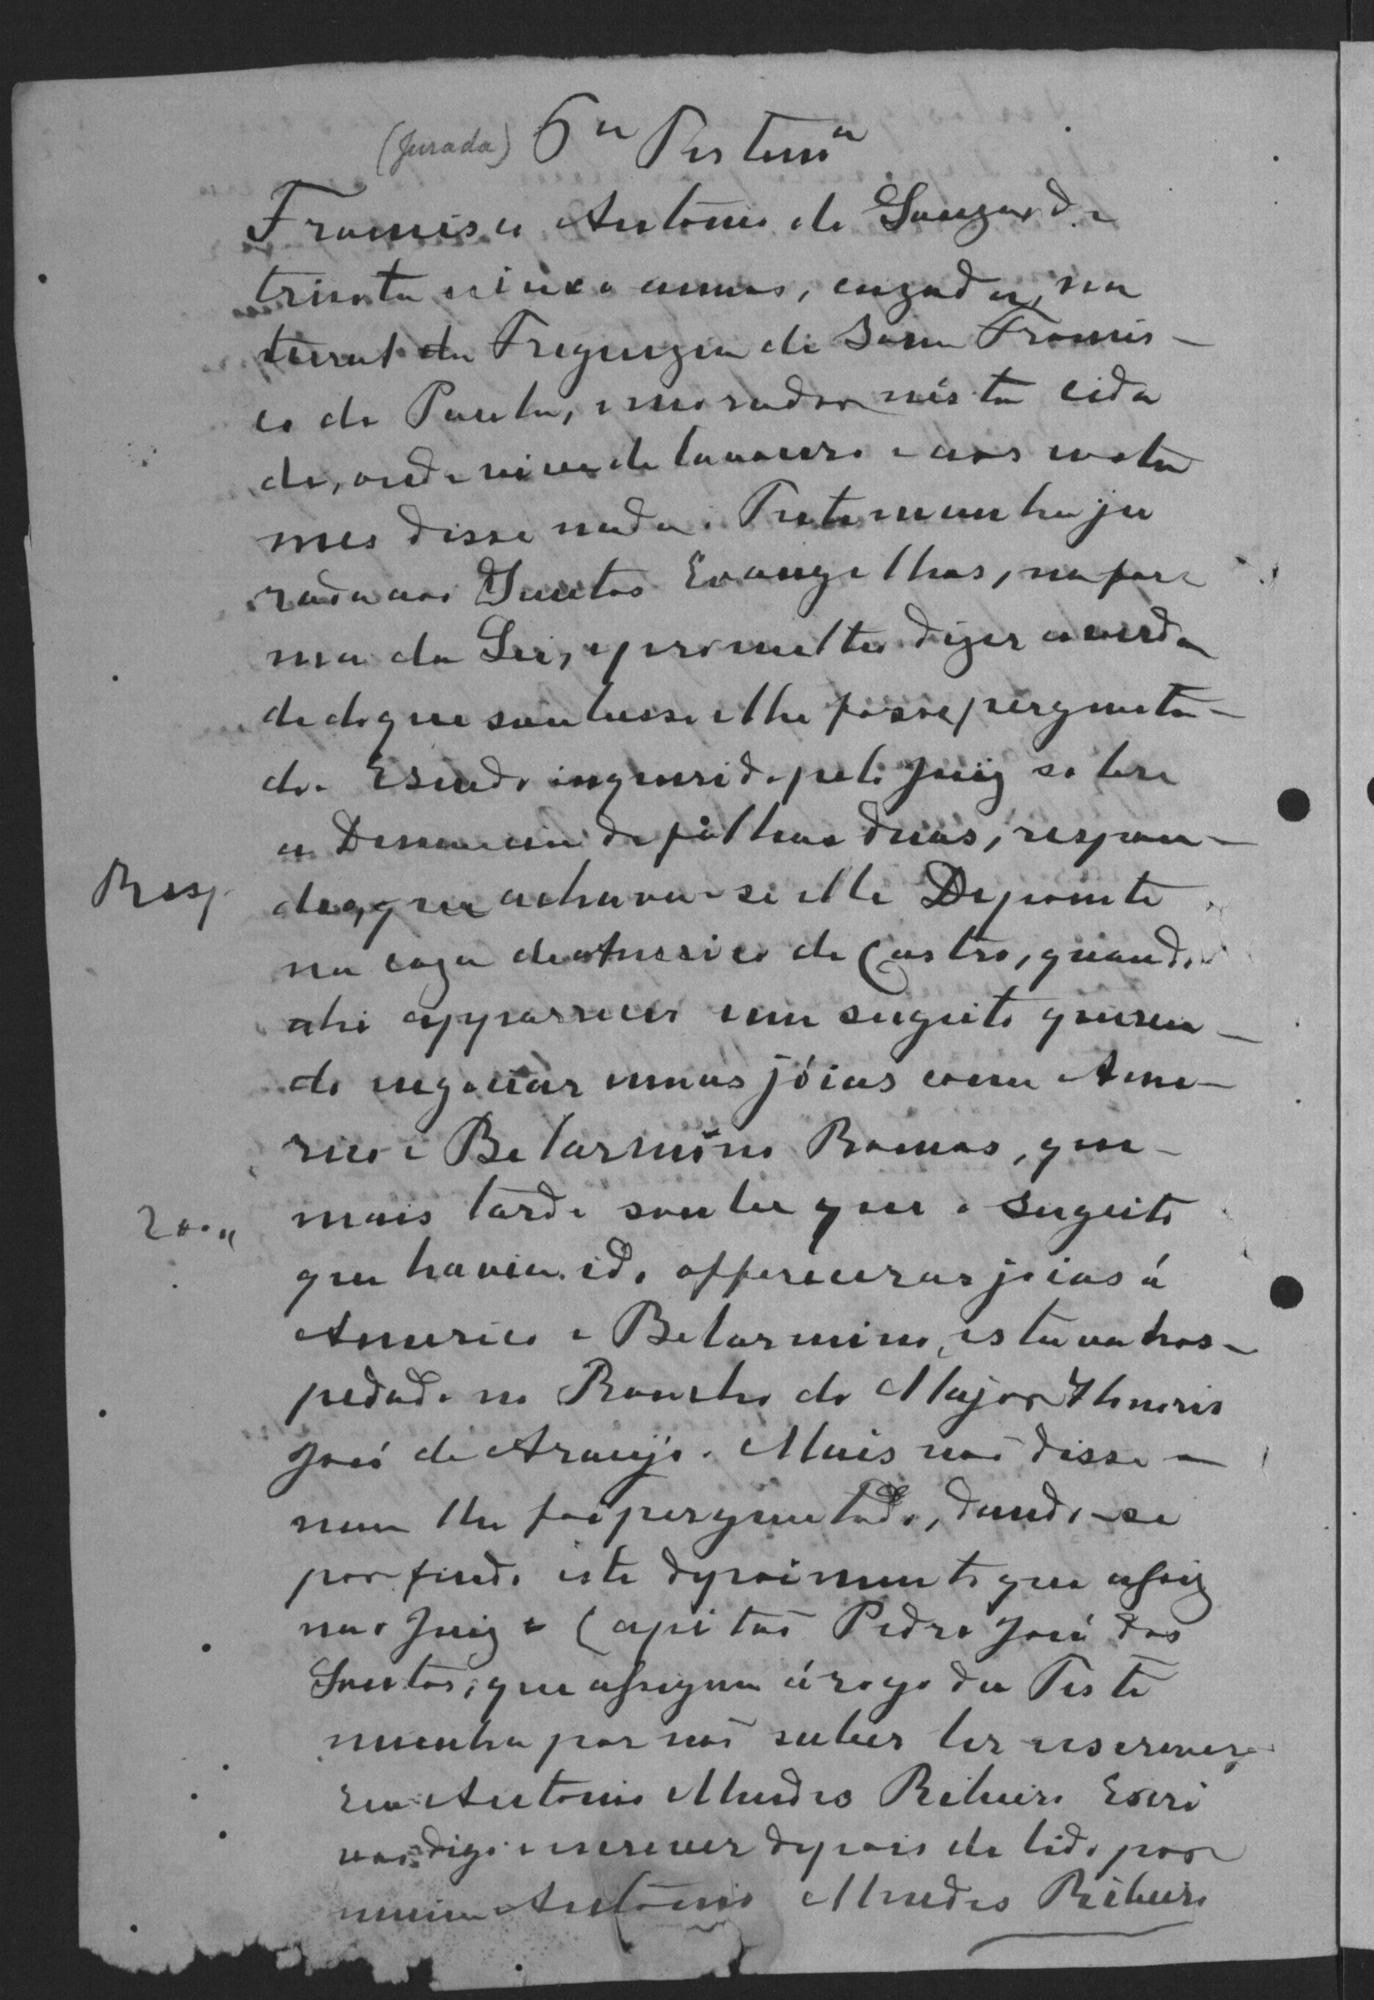 (Jurada) 6ª Testemª
Francisco Antonio de Souza, de
trinta e cinco annos, cazado, na
tural da Freguezia de Sam Francis-
co de Paula, e morador nésta cida
de, onde vive de lavoura e aos costu
mes disse nada. Testemunha ju
rada aos Santos Evangelhos, na for
ma da Lei, e prometteo dizer a verda
de do que soubesse e lhe fosse pergunta-
do. E sendo inquerido pelo Juiz sobre
a Denuncia de folhas duas, respon-
Resp. deo, que achava-se elle Depoente
na caza de Americo de Castro, quando
ahi appareceo um sugeito queren-
do negociar umas jóias com Ame-
rico e Belarmino Ramos, que
mais tarde soube que o sugeito
que havia ido offerecer as joias á
Americo e Belarmino, estava hos-
pedado no Rancho do Major Honorio
José de Araujo. Mais não disse e
nem lhe foi perguntado, dando-se
por findo este depoimento que assig
na o Juiz e Capitão Pedro José dos
Santos, que assigna á rogo da Teste
munha por não saber ler e escrever
Eu Antonio Mendes Ribeiro Escri
vão digo escrever depois de lido por
mim Antonio Mendes Ribeiro